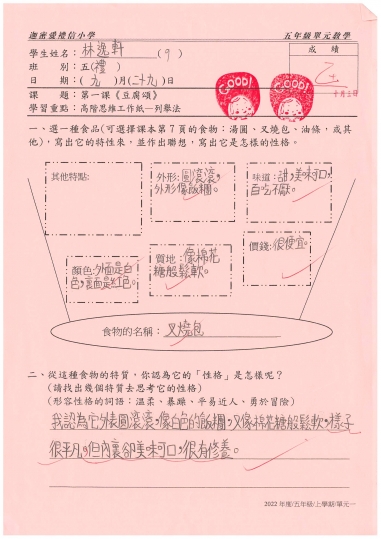 迦密愛禮信小學 五年級單元教學
學生姓名：林逸軒(9) 成績
班 別：五(禮)
日 期：(九)月(二十九)日
課 題：第一課《豆腐頌》
學習重點：高階思維工作紙—列舉法
GOOD! GOOD!
乙
十月三日
一、選一種食品(可選擇課本第7頁的食物：湯圓、叉燒包、油條，或其
他)，寫出它的特性來，並作出聯想，寫出它是怎樣的性格。
其他特點:
外形:圓滾滾，
外形像飯糰。
味道:
美味可口，
百吃不厭。
顏色:外面是白
色，裏面是紅色。
質地:像棉花
糖般鬆軟。
價錢:很便宜。
食物的名稱：叉燒包
二、從這種食物的特質，你認為它的「性格」是怎樣呢？
(請找出幾個特質去思考它的性格)
(形容性格的詞語：溫柔、暴躁、平易近人、勇於冒險)
我認為它外表圓滾滾，像白色的飯糰，又像棉花糖般鬆軟，樣子
很平凡，但內裏卻美味可口，很有修養。
2022年度/五年級/上學期/單元一